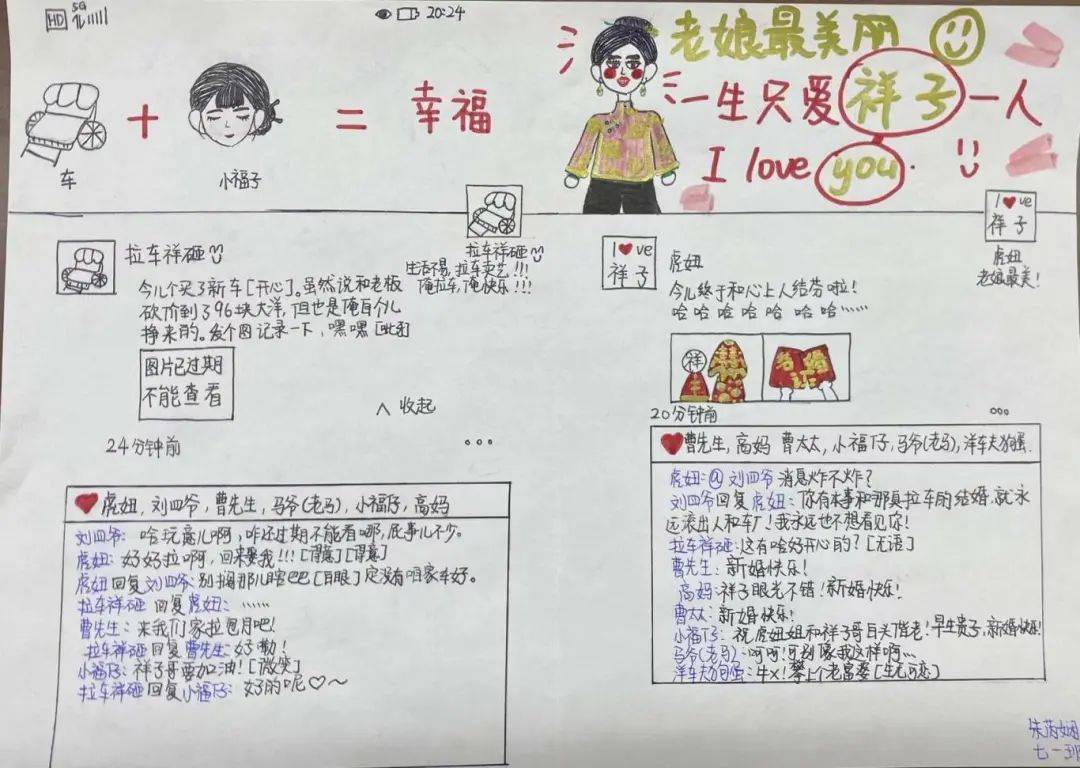 HD 5G 20:24
老娘最美丽
车 + 小福子 = 幸福
一生只爱祥子一人
I love you.
拉车祥砸
生活不易,拉车卖艺!!!
俺拉车,俺快乐!!!
拉车祥砸
今儿个买了新车[开心]。虽然说和老板
砍价到了96块大洋,但也是俺自个儿
挣来的。发个图记录一下,嘿嘿[呲牙]
图片已过期
不能查看
收起
24分钟前
虎妞,刘四爷,曹先生,马爷(老马),小福仔,高妈
刘四爷:啥玩意儿啊,咋还过期不能看哪,屁事儿不少。
虎妞:好好拉啊,回来娶我!!![得意][得意]
虎妞回复刘四爷:别搁那儿瞎巴巴[白眼]定没有咱家车好。
拉车祥砸回复虎妞:……
曹先生:来我们家拉包月吧!
拉车祥砸回复曹先生:好嘞!
小福仔:祥子哥要加油![微笑]
拉车祥砸回复小福仔:好的呢♡~
I ❤ ve
祥子
虎妞
老娘最美!
I ❤ ve
祥子
虎妞
今儿终于和心上人结婚啦!
哈哈哈哈哈哈哈……
祥
囍
结婚
证
20分钟前
曹先生,高妈 曹太太,小福仔,马爷(老马),洋车夫狗蛋.
虎妞:@刘四爷 消息炸不炸?
刘四爷回复虎妞:你有本事和那臭拉车的结婚,就永
远滚出人和车厂!我永远也不想看见你!
拉车祥砸:这有啥好开心的?[无语]
曹先生:新婚快乐!
高妈:祥子眼光不错!新婚快乐!
曹太太:新婚快乐!
小福仔:祝虎妞姐和祥子哥白头偕老!早生贵子,新婚快乐!
马爷(老马):呵呵!可别像我这样啊…
洋车夫狗蛋:牛X!攀上个老富婆[生无可恋]
朱芮娴
七一班